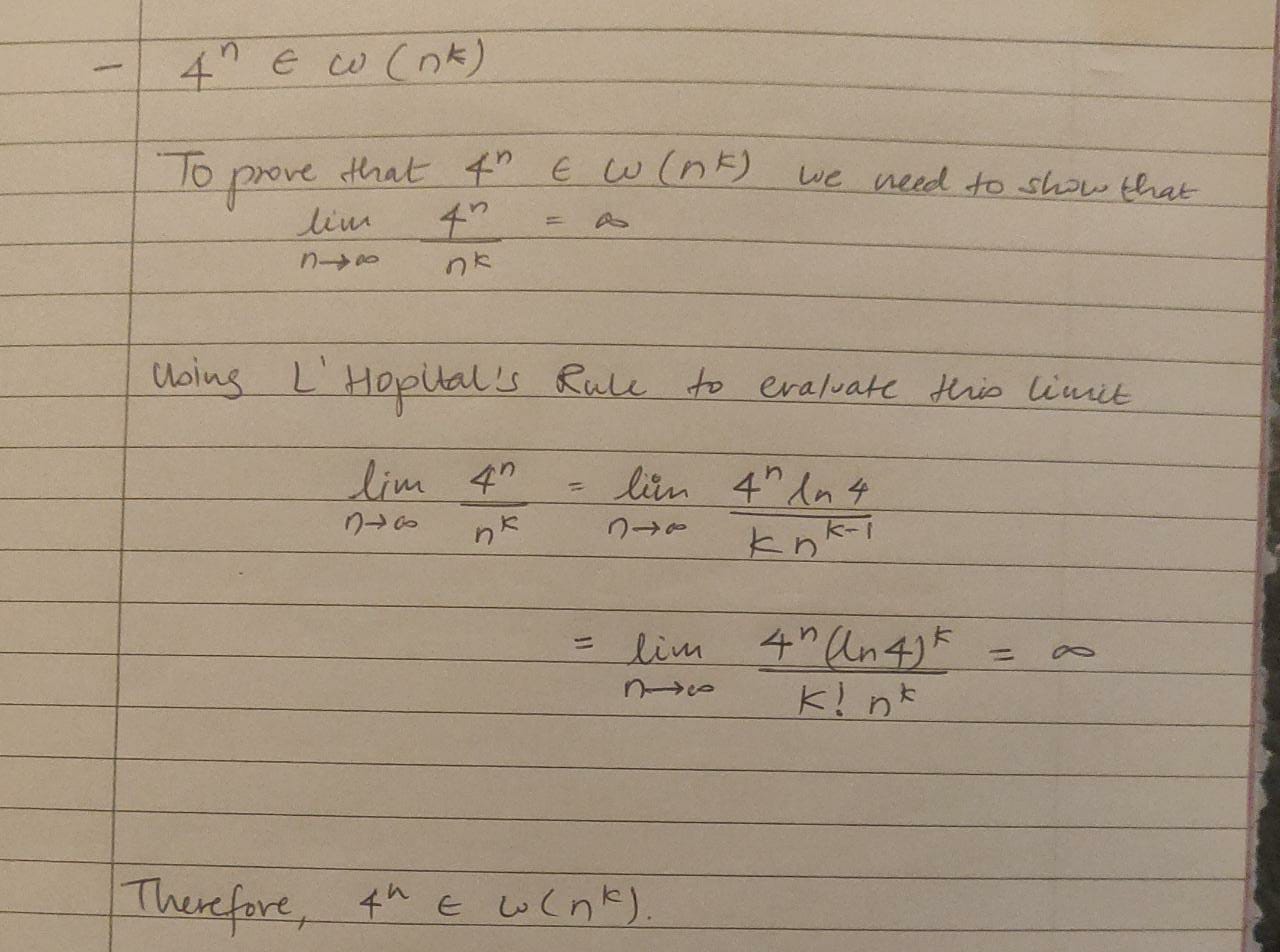 - 4ⁿ ∈ ω(nᵏ)
To prove that 4ⁿ ∈ ω(nᵏ) we need to show that
lim n→∞ 4ⁿ/nᵏ = ∞
Using L'Hopital's Rule to evaluate this limit
lim n→∞ 4ⁿ/nᵏ = lim n→∞ 4ⁿ ln 4/k nᵏ⁻¹
= lim n→∞ 4ⁿ(ln 4)ᵏ/k! nᵏ = ∞
Therefore, 4ⁿ ∈ ω(nᵏ).